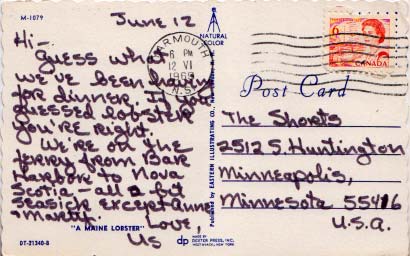 M-1079
June 12
Hi-
Guess what
we've been having
for dinner. If you
guessed lobster
you're right.
We're on the
ferry from Bar
Harbor to Nova
Scotia - all a bit
seasick except Anne
& Marty. Love,
Us
"A MAINE LOBSTER"
DT-21340-B
NATURAL
COLOR
Published by EASTERN ILLUSTRATING CO.,
dp
MADE BY
DEXTER PRESS, INC.
WEST NYACK, NEW YORK
YARMOUTH
6 PM
12 VI
1969
N.S.
6
CANADA
Post Card
The Shorts
2512 S. Huntington
Minneapolis,
Minnesota 55416
U.S.A.